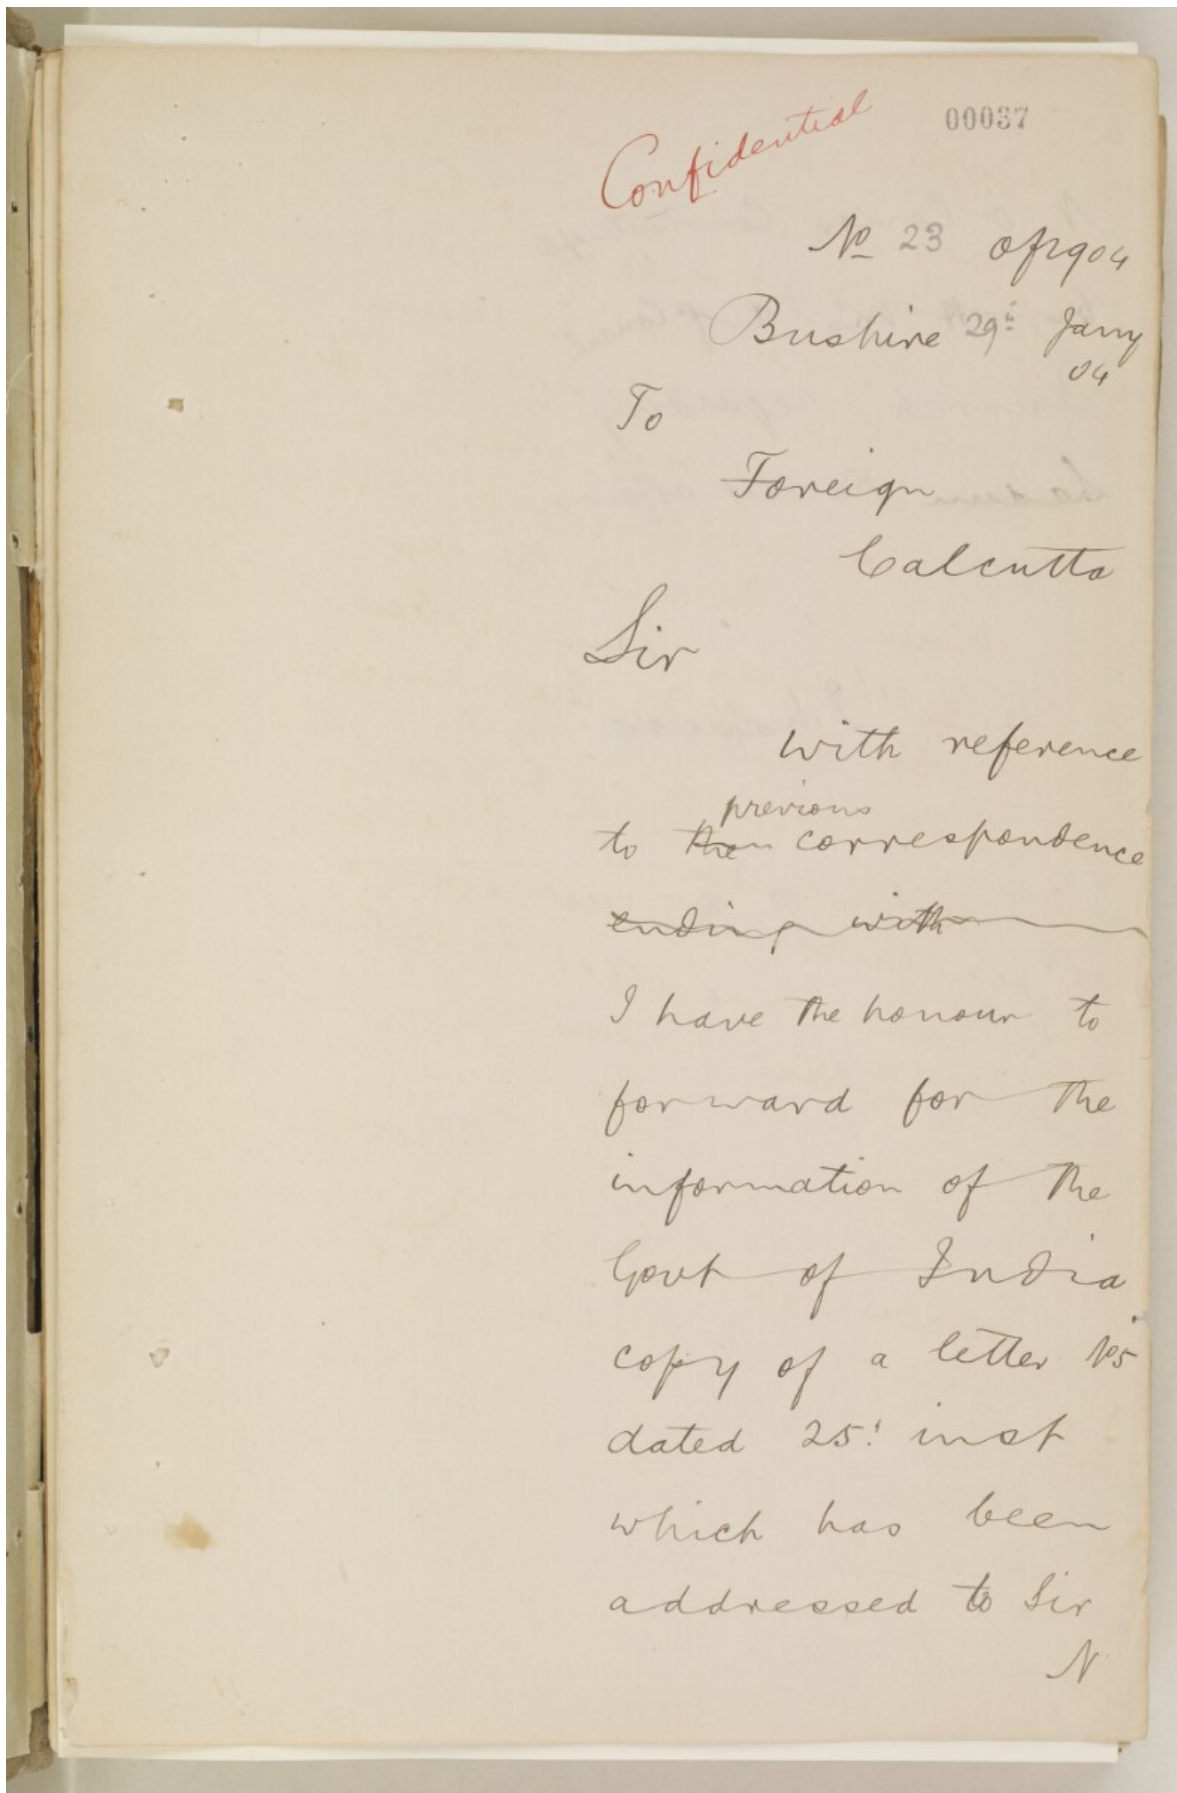 00037
Confidential
No 23 of 1904
Bushire 29th Jany
04
To
Foreign
Calcutta
Sir
with reference
previous
to the correspondence
ending with
I have the honour to
forward for the
information of the
Govt of India
copy of a letter No 5
dated 25th inst
which has been
addressed to Sir
N